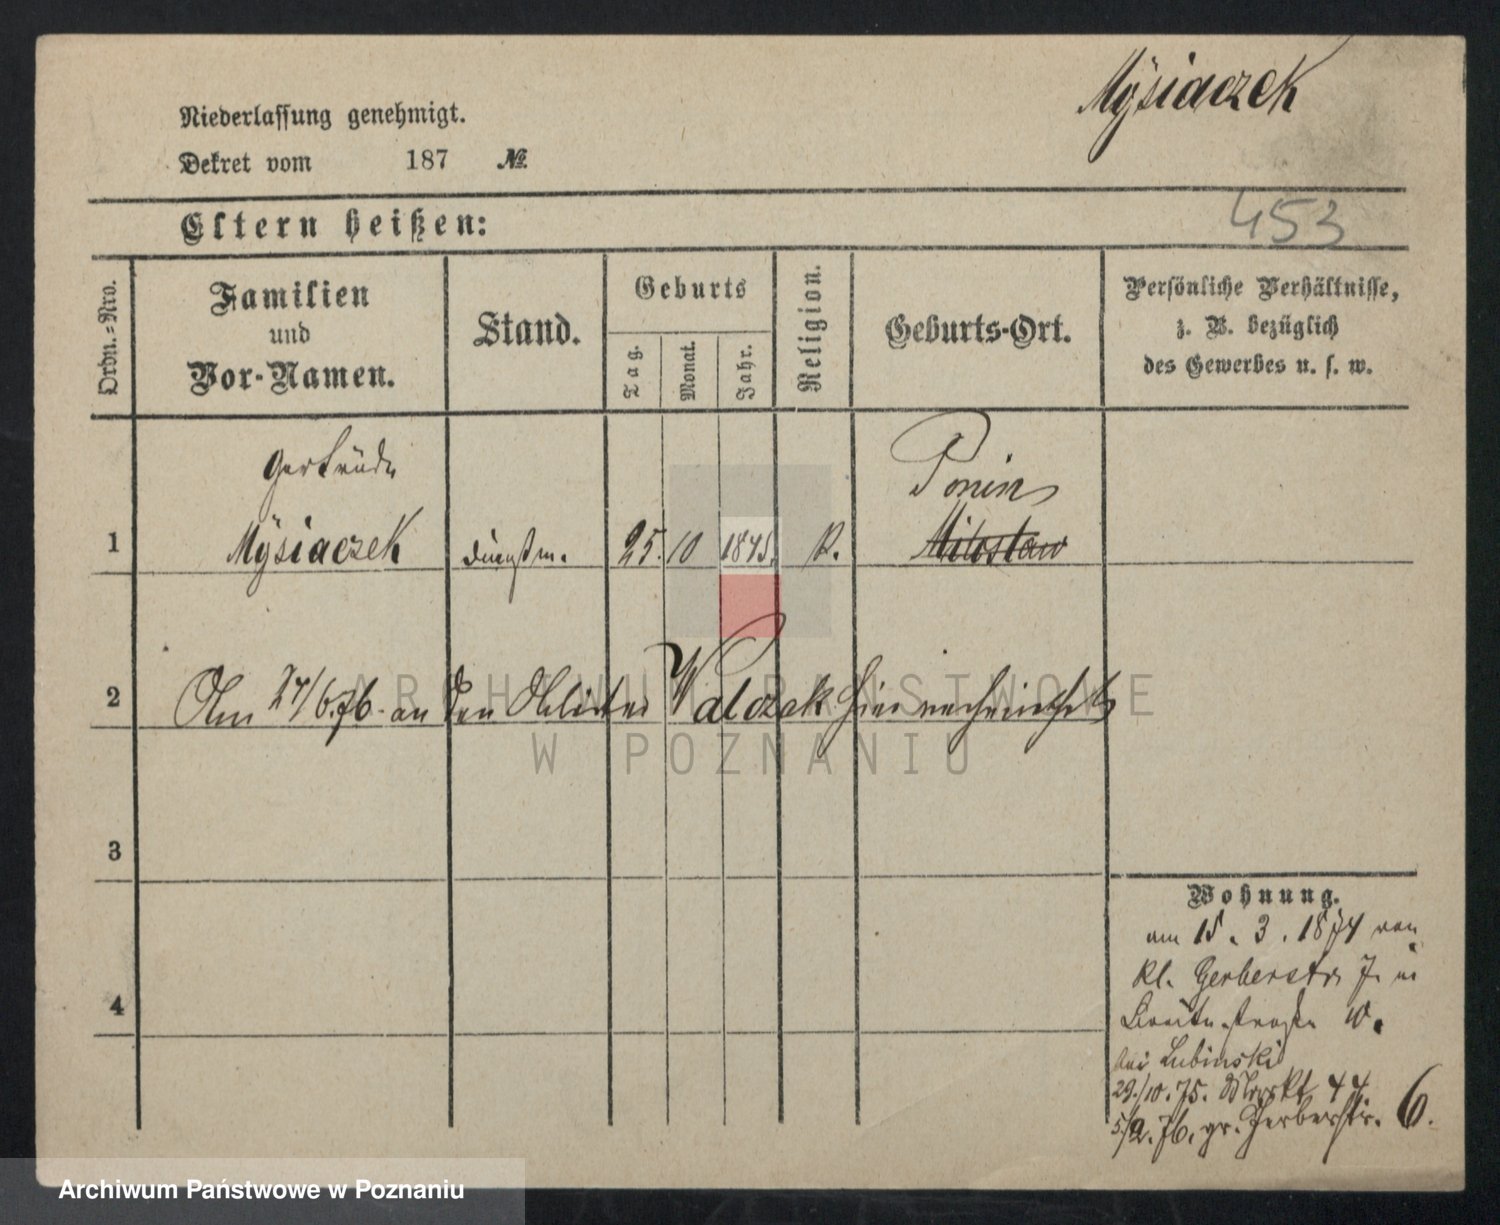 Mÿsiaczek
Niederlassung genehmigt.
Dekret vom 187 №
453
Eltern heißen:
Ordn.-Nro.
Familien
und
Vor-Namen.
Stand.
Geburts
Tag.
Monat.
Jahr.
Religion.
Geburts-Ort.
Persönliche Verhältnisse,
z. B. bezüglich
des Gewerbes u. s. w.
Gertrüde
Ponin
1 Mÿsiaczek Dienstm. 25. 10 1845. K. Miloslaw
2 Am 27/6.76. an den Walczak hier verheirathet
ARCHIWUM PAŃSTWOWE
W POZNANIU
3
4
Wohnung.
am 15. 3. 1874 von
kl. Gerberstr 7. in
Breite straße 10.
bei Lubinski
29./10.75. Markt 44
5/2.76. gr. Gerberstr. 6.
Archiwum Państwowe w Poznaniu